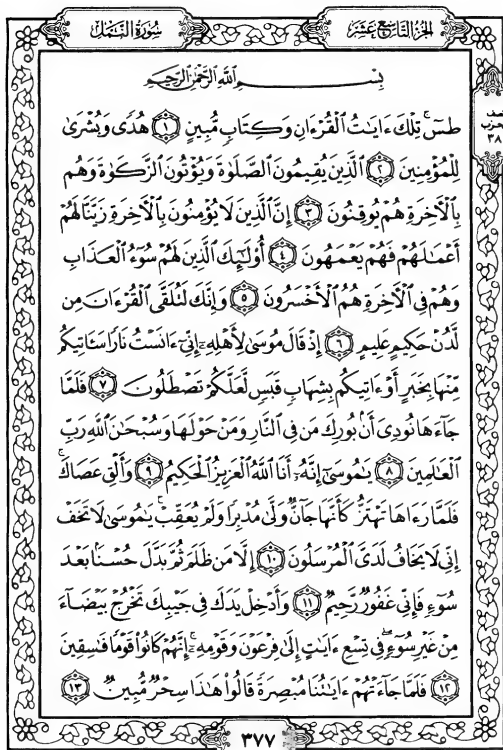 الجزء التاسع عشر
سورة النمل
نصف
الحزب
٣٨
بسم الله الرحمن الرحيم
طسٓ ۚ تِلْكَ ءَايَٰتُ ٱلْقُرْءَانِ وَكِتَابٍ مُّبِينٍ ١ هُدًى وَبُشْرَىٰ
لِلْمُؤْمِنِينَ ٢ ٱلَّذِينَ يُقِيمُونَ ٱلصَّلَوٰةَ وَيُؤْتُونَ ٱلزَّكَوٰةَ وَهُم
بِٱلْءَاخِرَةِ هُمْ يُوقِنُونَ ٣ إِنَّ ٱلَّذِينَ لَا يُؤْمِنُونَ بِٱلْءَاخِرَةِ زَيَّنَّا لَهُمْ
أَعْمَٰلَهُمْ فَهُمْ يَعْمَهُونَ ٤ أُو۟لَٰٓئِكَ ٱلَّذِينَ لَهُمْ سُوٓءُ ٱلْعَذَابِ
وَهُمْ فِى ٱلْءَاخِرَةِ هُمُ ٱلْأَخْسَرُونَ ٥ وَإِنَّكَ لَتُلَقَّى ٱلْقُرْءَانَ مِن
لَّدُنْ حَكِيمٍ عَلِيمٍ ٦ إِذْ قَالَ مُوسَىٰ لِأَهْلِهِۦٓ إِنِّىٓ ءَانَسْتُ نَارًا سَـَٔاتِيكُم
مِّنْهَا بِخَبَرٍ أَوْ ءَاتِيكُم بِشِهَابٍ قَبَسٍ لَّعَلَّكُمْ تَصْطَلُونَ ٧ فَلَمَّا
جَآءَهَا نُودِىَ أَنۢ بُورِكَ مَن فِى ٱلنَّارِ وَمَنْ حَوْلَهَا وَسُبْحَٰنَ ٱللَّهِ رَبِّ
ٱلْعَٰلَمِينَ ٨ يَٰمُوسَىٰٓ إِنَّهُۥٓ أَنَا ٱللَّهُ ٱلْعَزِيزُ ٱلْحَكِيمُ ٩ وَأَلْقِ عَصَاكَ ۚ
فَلَمَّا رَءَاهَا تَهْتَزُّ كَأَنَّهَا جَآنٌّ وَلَّىٰ مُدْبِرًا وَلَمْ يُعَقِّبْ ۚ يَٰمُوسَىٰ لَا تَخَفْ
إِنِّى لَا يَخَافُ لَدَىَّ ٱلْمُرْسَلُونَ ١٠ إِلَّا مَن ظَلَمَ ثُمَّ بَدَّلَ حُسْنًۢا بَعْدَ
سُوٓءٍ فَإِنِّى غَفُورٌ رَّحِيمٌ ١١ وَأَدْخِلْ يَدَكَ فِى جَيْبِكَ تَخْرُجْ بَيْضَآءَ
مِنْ غَيْرِ سُوٓءٍ ۖ فِى تِسْعِ ءَايَٰتٍ إِلَىٰ فِرْعَوْنَ وَقَوْمِهِۦٓ ۚ إِنَّهُمْ كَانُوا۟ قَوْمًا فَٰسِقِينَ
١٢ فَلَمَّا جَآءَتْهُمْ ءَايَٰتُنَا مُبْصِرَةً قَالُوا۟ هَٰذَا سِحْرٌ مُّبِينٌ ١٣
٣٧٧